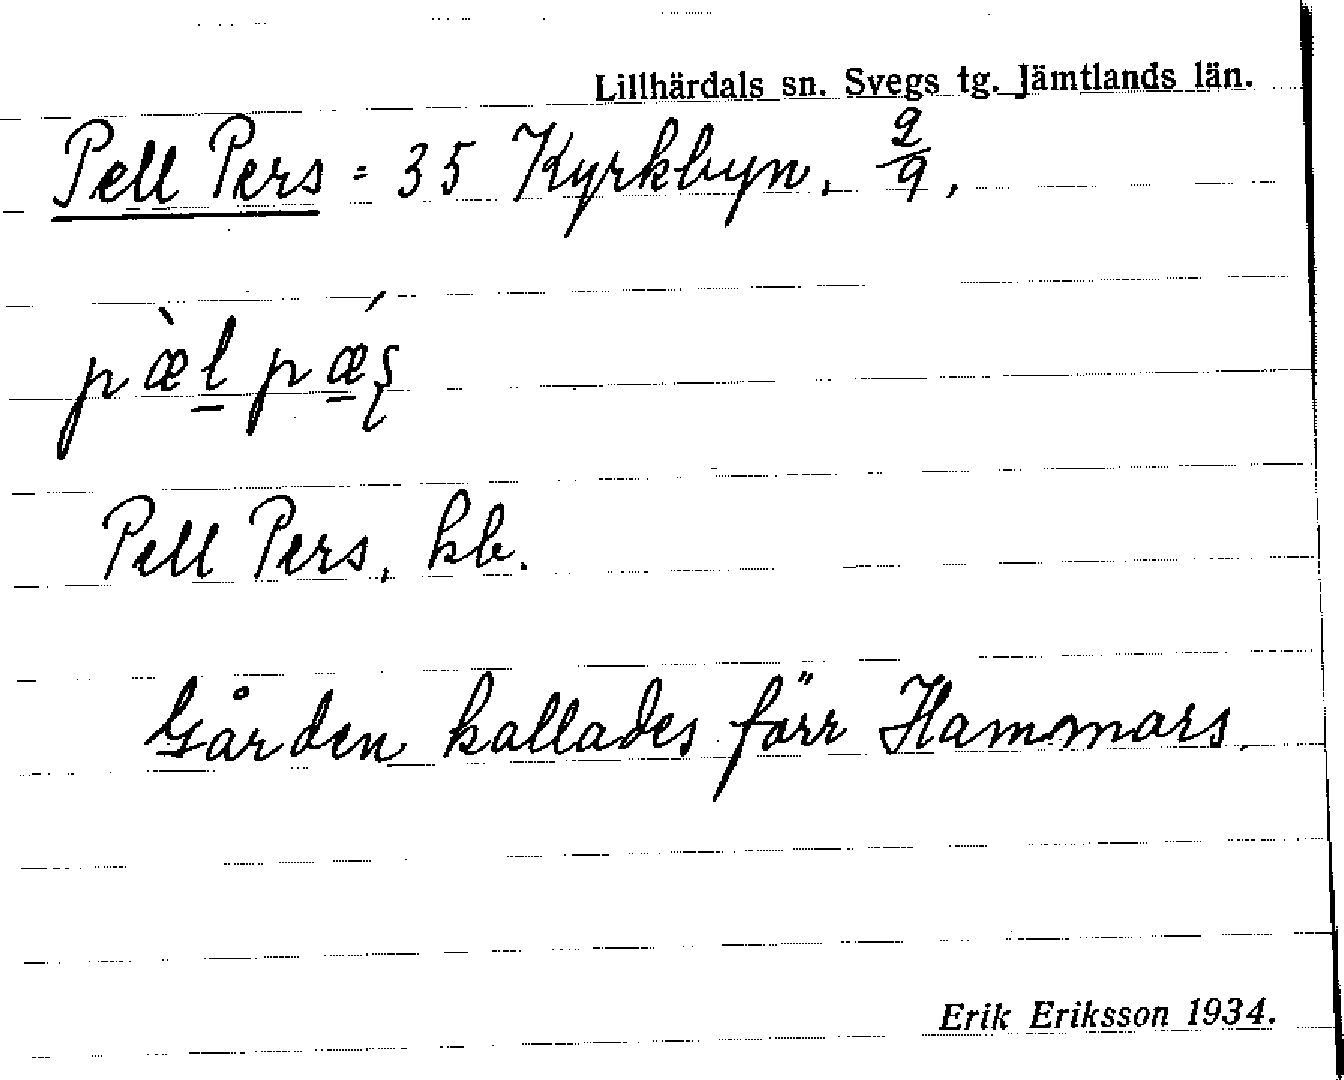 Lillhärdals sn. Svegs tg. Jämtlands län.
Pell Pers = 35 Kyrkbyn, 2/9,
pæ̀l̲ pǽ̲ʂ
Pell Pers, kb.
Gården kallades förr Hammars.
Erik Eriksson 1934.